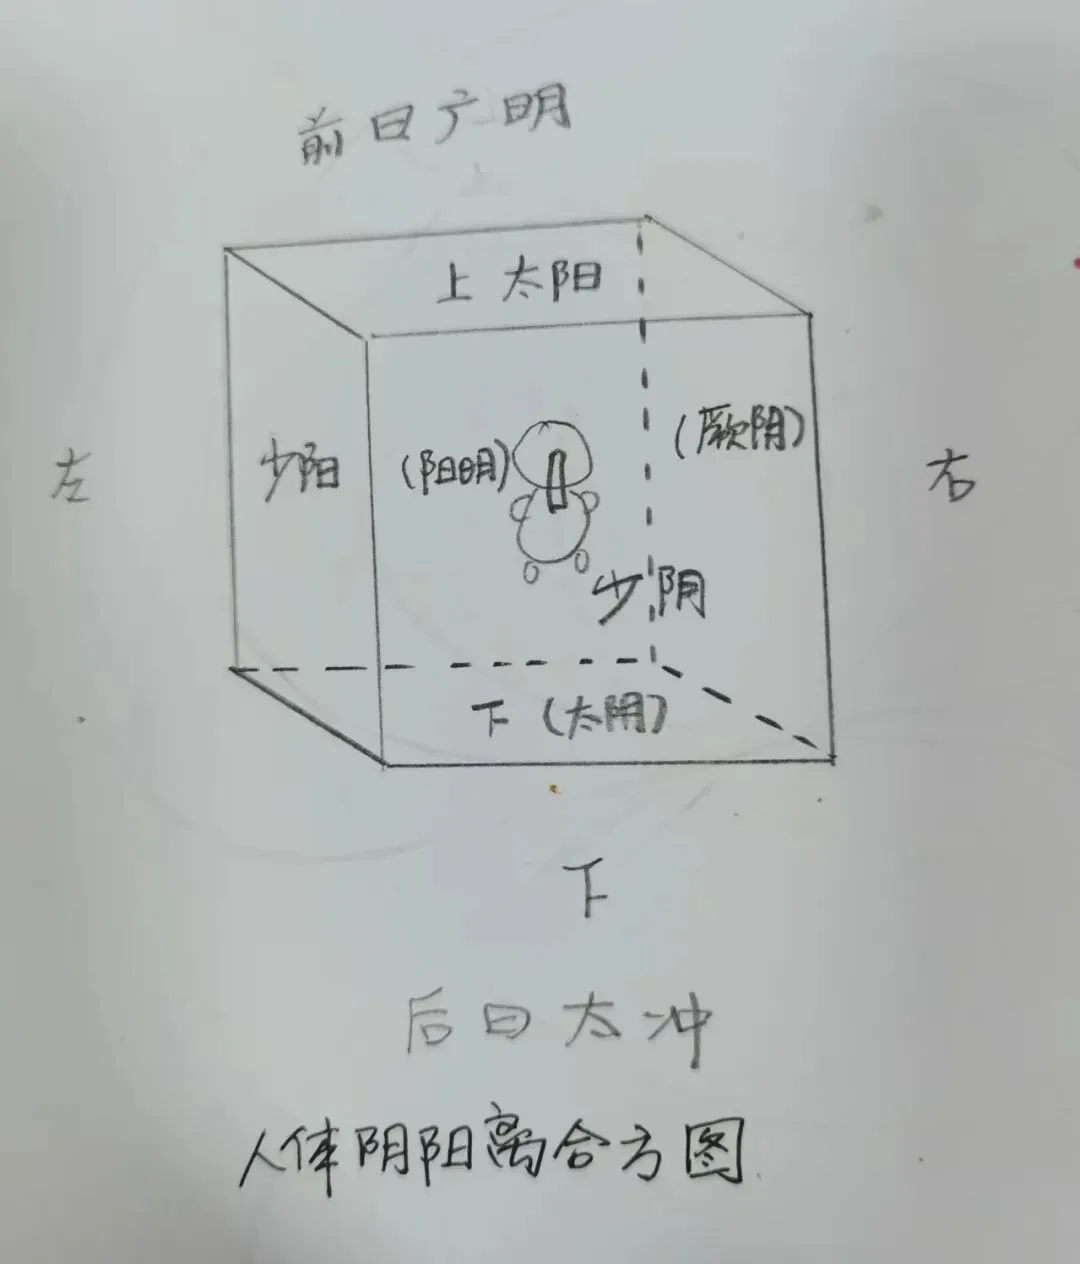 前曰广明
上 太阳
(厥阴)
左
少阳
(阳明)
右
少阴
下 (太阴)
下
后曰太冲
人体阴阳离合方图